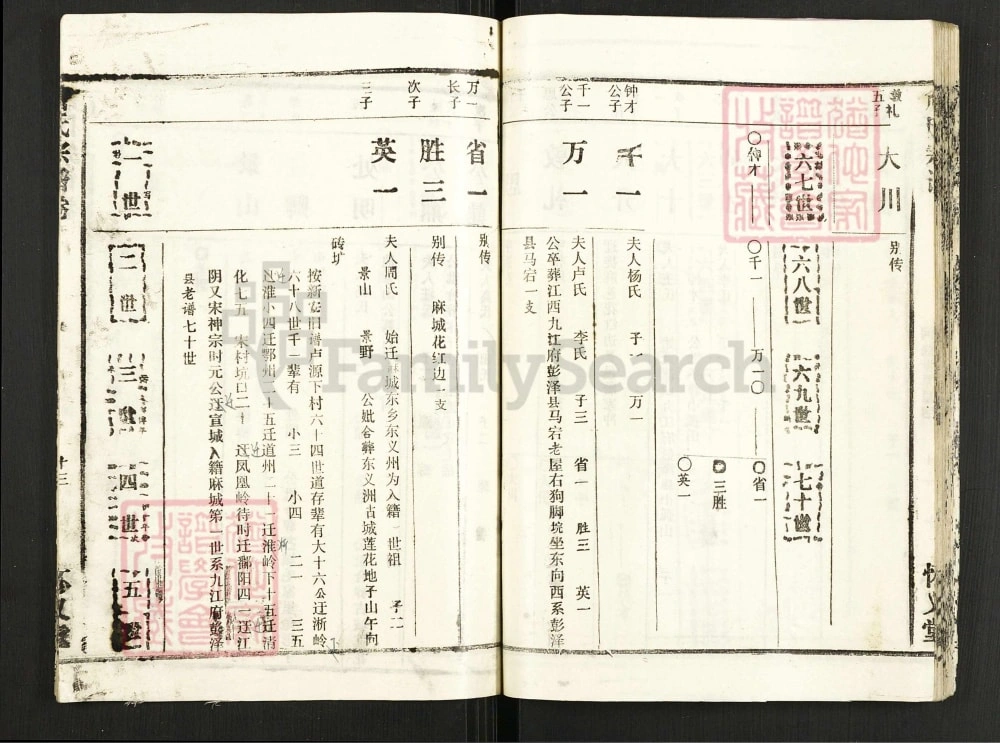 五子
大川
别传
六七世
六八世
六九世
七十世
钟才
千一
万一
省一
三胜
英一
钟才公子
千一
夫人杨氏 子一 万一
千一公子
万一
夫人卢氏 李氏 子三 省一 胜三 英一
公卒葬江西九江府彭泽县马宕老屋右狗脚垸坐东向西系彭泽
县马宕一支
怀义堂
万一长子
省一
别传
次子
胜三
别传 麻城花红边一支
三子
英一
夫人周氏 始迁麻城东乡东义州为入籍一世祖 子二
景山 景野 公妣合葬东义洲古城莲花地子山午向
砖圹
按新安旧谱卢源下村六十四世道存辈有大十六公迁淅岭
六十八世千一辈有 小三 小四 二一 三五
迁淮小四迁鄂州二十五迁道州二十一迁淮岭下十五迁清
化七五 宋村坑口二十 迁凤凰岭待时迁鄱阳四一迁江
阴又宋神宗时元公迁宣城入籍麻城第一世系九江府彭泽
县老谱七十世
一世
二世
三
四世
五
十三
FamilySearch